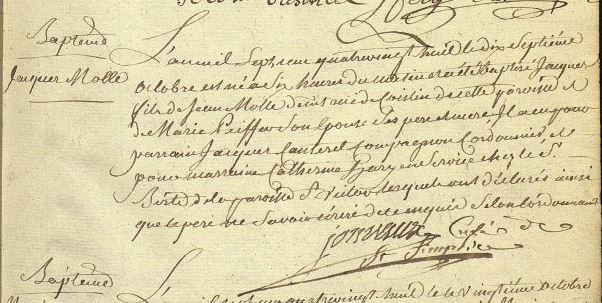 Baptême
Jacques Molle
L'an mil sept cent quatrevingt huit le dix septième
octobre est né a six heures du matin et a été baptisé jacques
fils de jean Molle de cette paroisse et
de Marie peiffer son épouse ses pere et mere il a eu pour
parrain jacques Canterel Compagnon Cordonnier et
pour marraine Catherine en service chez le Sr
de la paroisse St victor lesquels ont déclarés ainsi
que le pere ne savoir écrire de ce enquis selon l'ordonnance
Curé de
St Simplice
Baptême
L'an mil sept cent quatrevingt huit le vingtième octobre